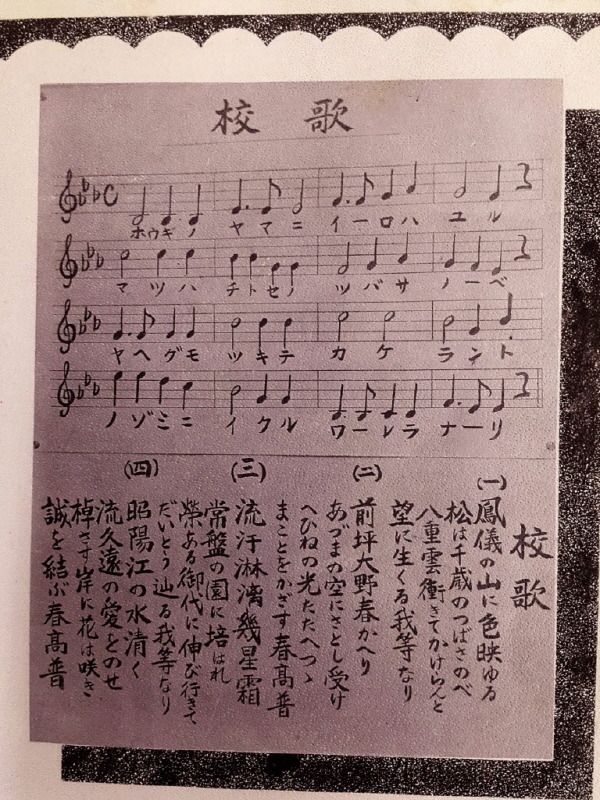 校歌
ホウギノ ヤマニ イーロハ ユル
マツハ チトセノ ツバサ ノーベ
ヤヘグモ ツキテ カケ ラント
ノゾミニ イクル ワーレラ ナーリ
校歌
(一)
鳳儀の山に色映ゆる
松は千歳のつばさのべ
八重雲衝きてかけらんと
望に生くる我等なり
(二)
前坪大野春かへり
あづまの空にさとし受け
へひねの光たたへつゝ
まことをかざす春高普
(三)
流汗淋漓幾星霜
常盤の園に培はれ
榮ある御代に伸び行きて
だいとう辿る我等なり
(四)
昭陽江の水清く
流久遠の愛をのせ
棹さす岸に花は咲き
誠を結ぶ春高普